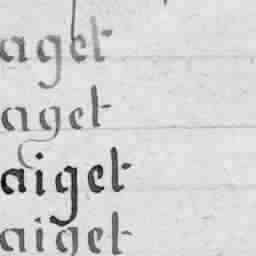 aget
aget
aiget
aiget